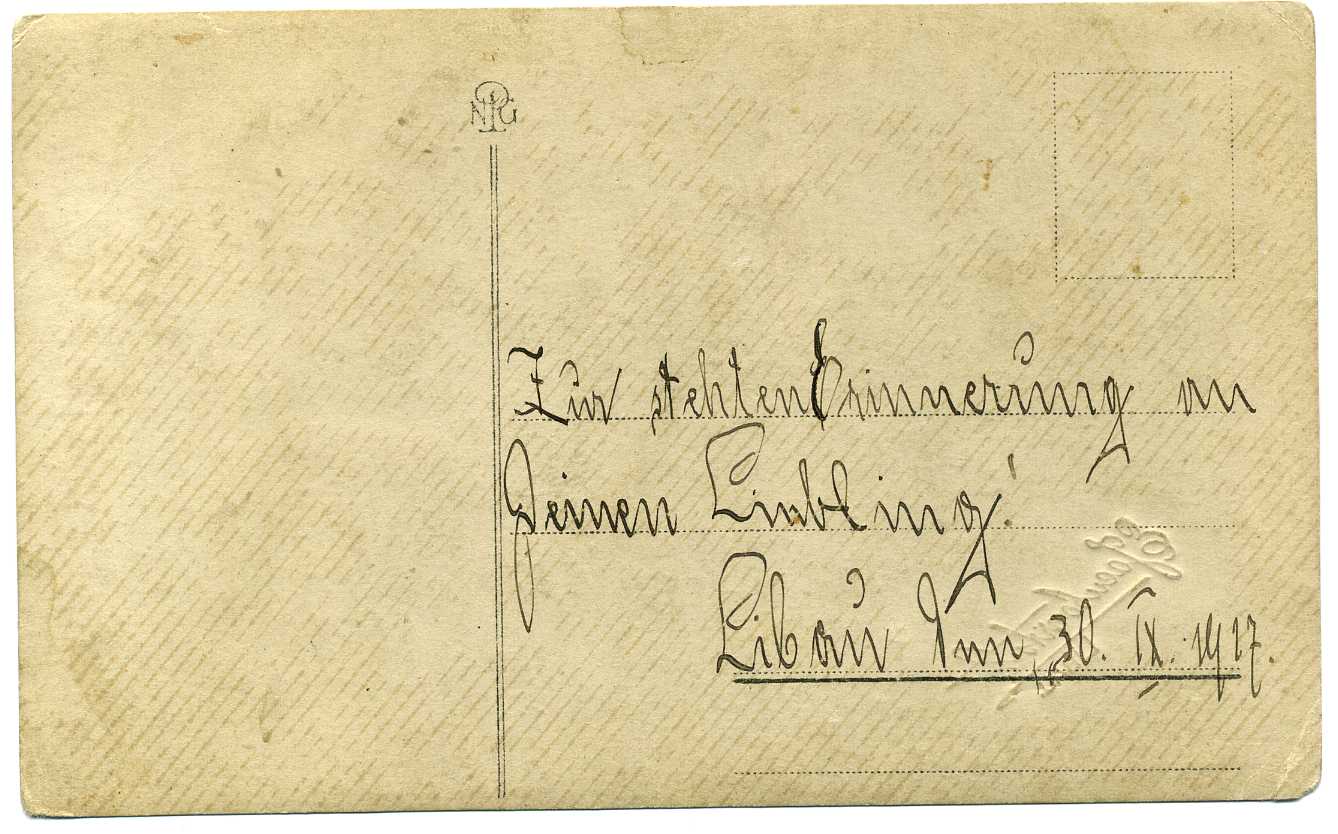 NPG
Zur stehten Erinnerung an
Deinen Liebling!
Libau den 30. IX. 1917.